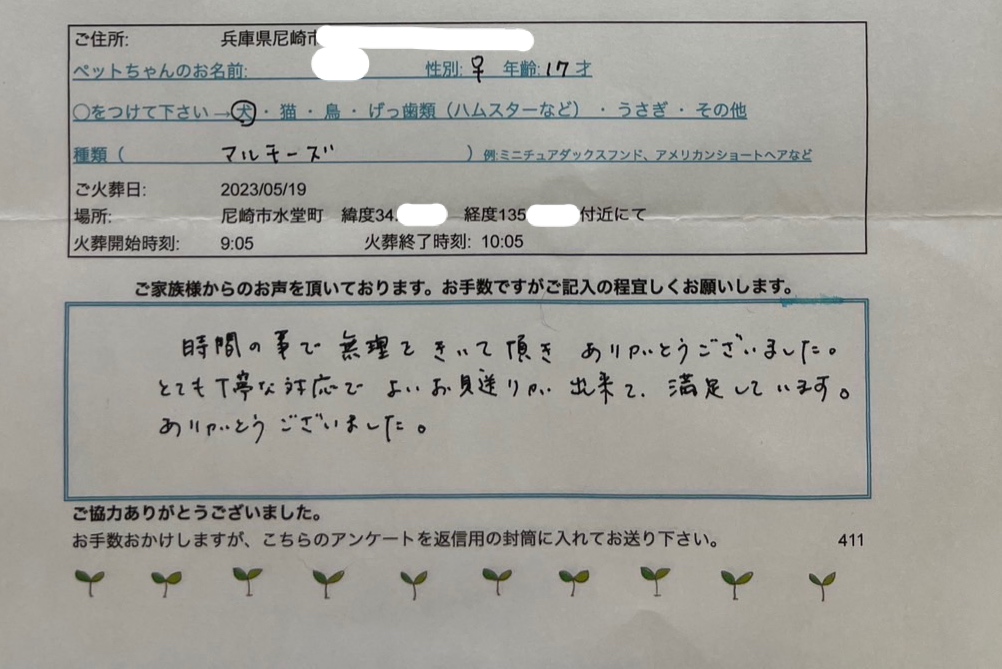 ご住所: 兵庫県尼崎市
ペットちゃんのお名前: 性別: ♀ 年齢: 17 才
○をつけて下さい→犬・猫・鳥・げっ歯類(ハムスターなど)・うさぎ・その他
種類( マルチーズ )例:ミニチュアダックスフンド、アメリカンショートヘアなど
ご火葬日: 2023/05/19
場所: 尼崎市水堂町 緯度34. 経度135 付近にて
火葬開始時刻: 9:05 火葬終了時刻: 10:05
ご家族様からのお声を頂いております。お手数ですがご記入の程宜しくお願いします。
時間の事で無理をきいて頂き ありがとうございました。
とても丁寧な対応でよいお見送りが出来て、満足しています。
ありがとうございました。
ご協力ありがとうございました。
お手数おかけしますが、こちらのアンケートを返信用の封筒に入れてお送り下さい。 411